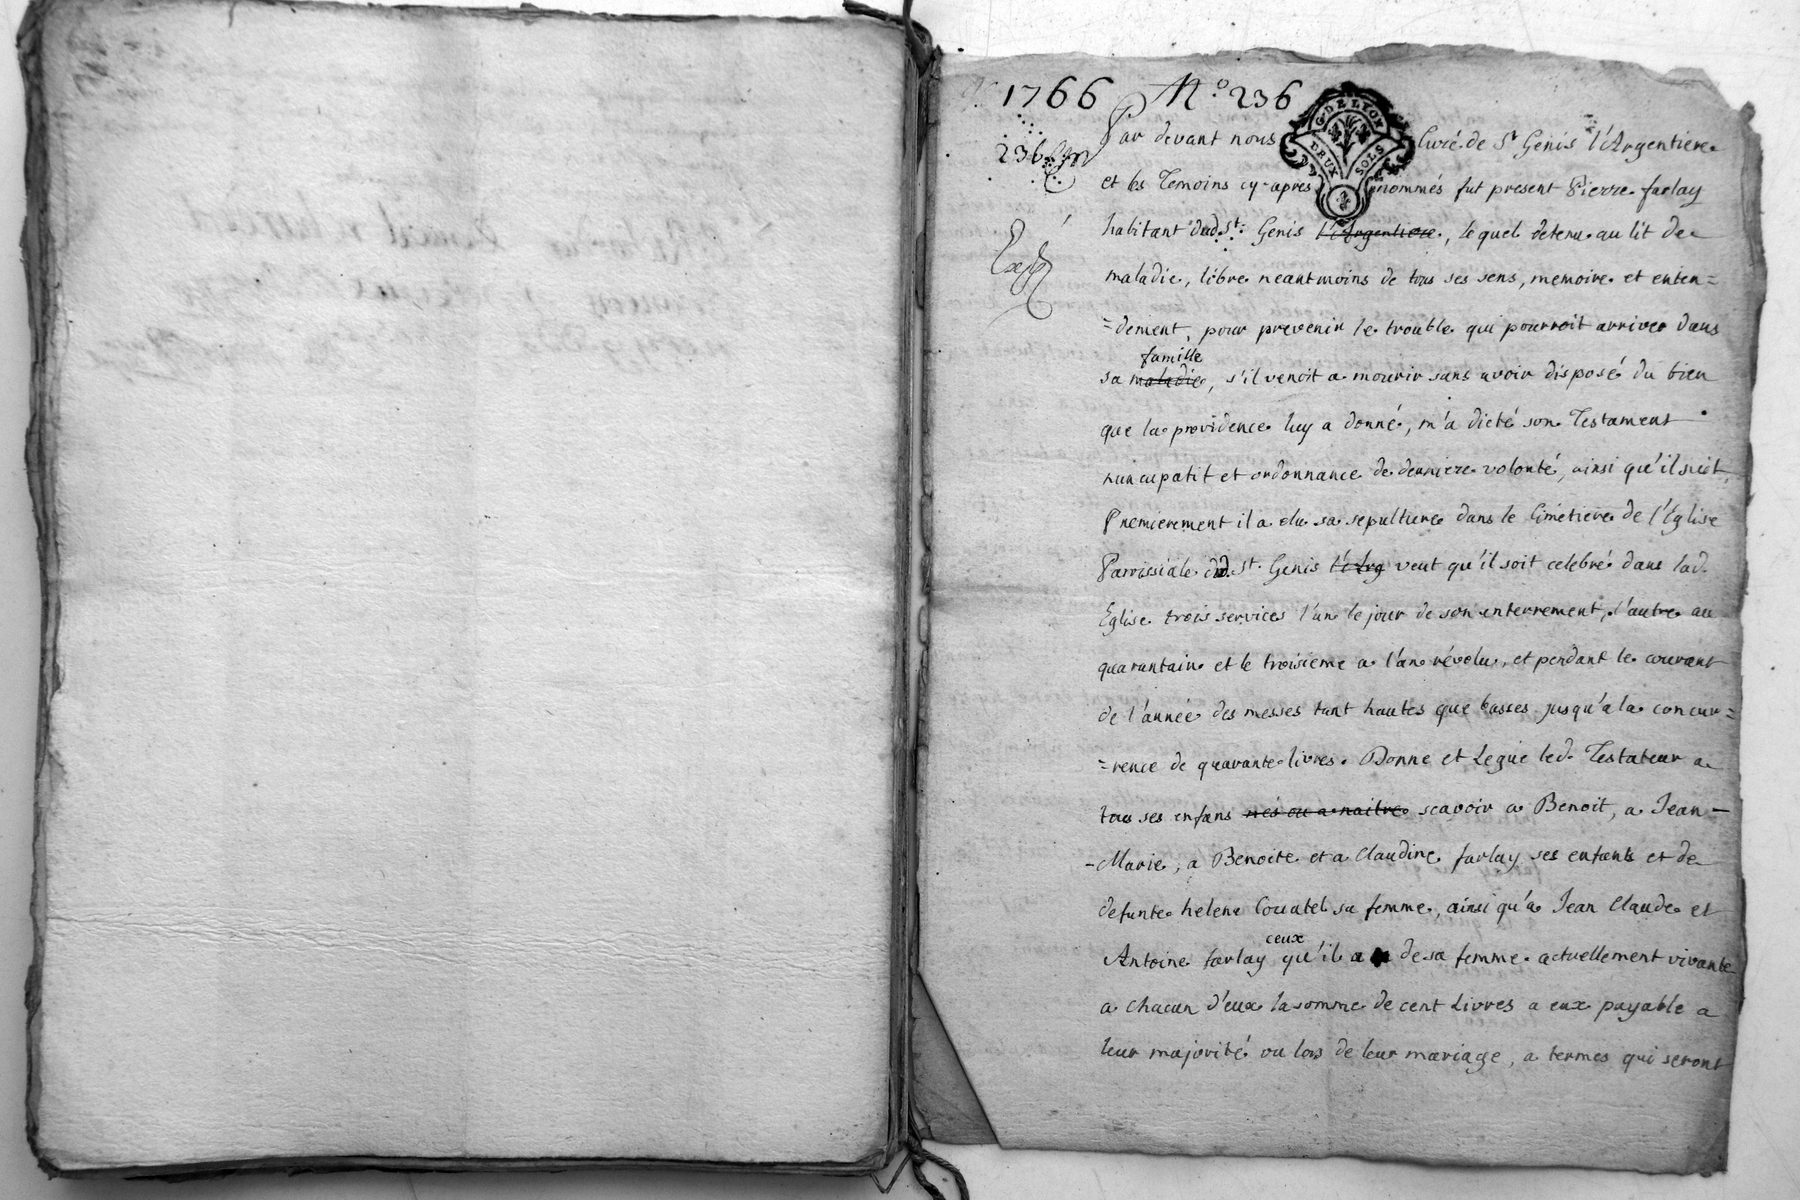 1766 N.o 236
G. DE LYON
DEUX SOLS
Par devant nous Curé de St Genis l'Argentiere
236
et les Temoins cy-apres nommés fut present Pierre farlay
habitant dud. St. Genis l'Argentiere, lequel detenu au lit de
Exp
maladie, libre neantmoins de tous ses sens, memoire et enten=
=dement, pour prevenir le trouble qui pourroit arriver dans
famille
sa maladie, s'il venoit a mourir sans avoir disposé du bien
que la providence luy a donné, m'a dicté son Testament
nuncupatif et ordonnance de derniere volonté, ainsi qu'il suit,
Premierement il a elu sa sepulture dans le Cimetiere de l'Eglise
Paroissiale dud. St. Genis l'Arg veut qu'il soit celebré dans lad.
Eglise trois services l'un le jour de son enterrement, l'autre au
quarantain et le troisieme a l'an révolu, et pendant le courant
de l'année des messes tant hautes que basses jusqu'a la concur=
=rence de quarante livres. Donne et Legue led. Testateur a
tous ses enfans nés ou a naitre scavoir a Benoit, a Jean-
-Marie, a Benoite et a Claudine farlay ses enfants et de
defunte helene Couatel sa femme, ainsi qu'a Jean Claude et
ceux
Antoine farlay qu'il a de sa femme actuellement vivante
a chacun d'eux la somme de cent Livres a eux payable a
leur majorité ou lors de leur mariage, a termes qui seront